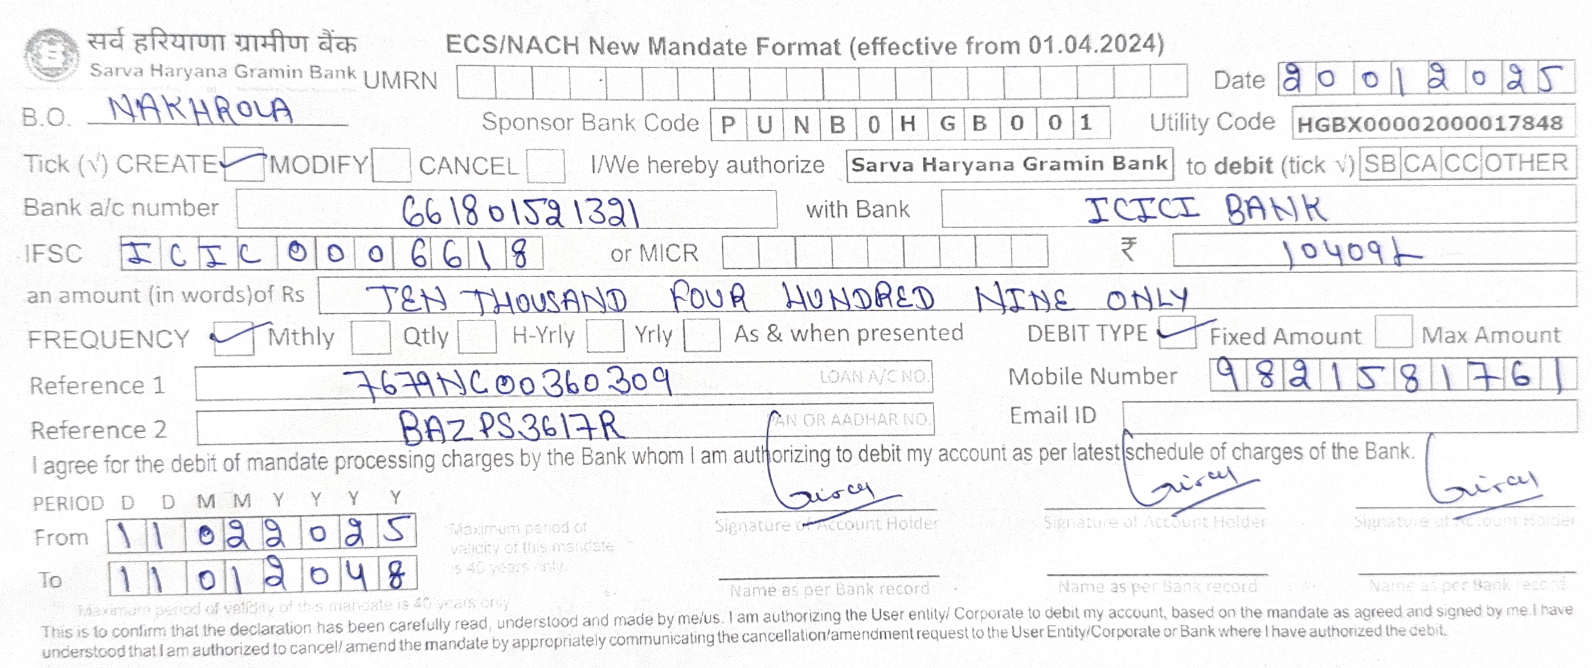 सर्व हरियाणा ग्रामीण बैंक
Sarva Haryana Gramin Bank
ECS/NACH New Mandate Format (effective from 01.04.2024)
UMRN Date 20012025
B.O. NAKHROLA
Sponsor Bank Code PUNB0HGB001 Utility Code HGBX00002000017848
Tick (√) CREATE ✓ MODIFY CANCEL I/We hereby authorize Sarva Haryana Gramin Bank to debit (tick √) SB CA CC OTHER
Bank a/c number 661801521321 with Bank ICICI BANK
IFSC ICIC0006618 or MICR ₹ 10409/-
an amount (in words)of Rs TEN THOUSAND FOUR HUNDRED NINE ONLY
FREQUENCY ✓ Mthly Qtly H-Yrly Yrly As & when presented DEBIT TYPE ✓ Fixed Amount Max Amount
Reference 1 7679NC00360309 LOAN A/C NO. Mobile Number 9821581761
Reference 2 BAZPS3617R PAN OR AADHAR NO. Email ID
I agree for the debit of mandate processing charges by the Bank whom I am authorizing to debit my account as per latest schedule of charges of the Bank.
PERIOD D D M M Y Y Y Y
From 11022025
To 11012048
Maximum period of
validity of this mandate
is 40 years only.
Signature of Account Holder Signature of Account Holder Signature of Account Holder
Name as per Bank record Name as per Bank record Name as per Bank record
Maximum period of validity of this mandate is 40 years only
This is to confirm that the declaration has been carefully read, understood and made by me/us. I am authorizing the User entity/ Corporate to debit my account, based on the mandate as agreed and signed by me. I have
understood that I am authorized to cancel/ amend the mandate by appropriately communicating the cancellation/amendment request to the User Entity/Corporate or Bank where I have authorized the debit.